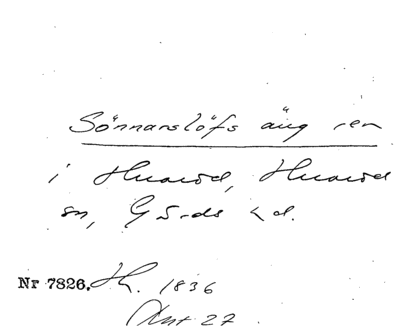 Sönnarslöfs äng ren
i Huaröd, Huaröd
sn, Gärds hd.
Nr 7826. H. 1836
27